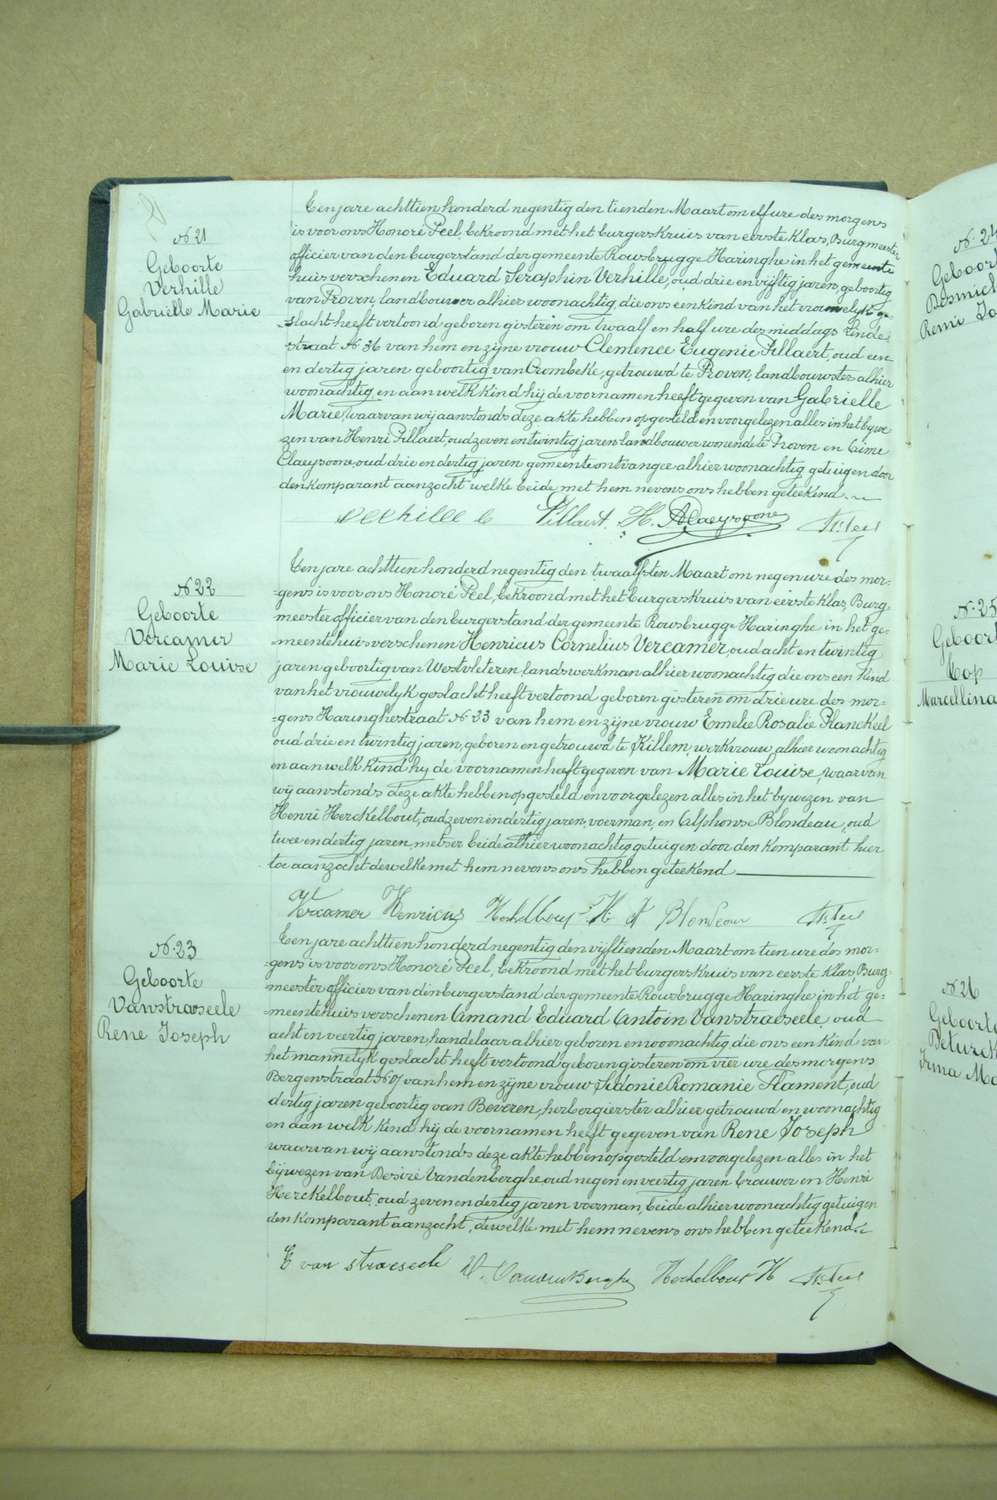 N. 21
Geboorte
Verhille
Gabrielle Marie
Een jare achttien honderd negentig den tienden Maart om elf ure des morgens
is voor ons Honoré Peel bekroond met het burgerskruis van eerste klas, Burgmeester
officier van den burgerstand der gemeente Rousbrugge Haringhe in het gemeente
huis verschenen Eduard Seraphin Verhille, oud drie en vijftig jaren, geboortig
van Proven, landbouwer alhier woonachtig die ons een kind van het vrouwelijk ge-
slacht heeft vertoond geboren gisteren om twaalf en half ure des middags Einde
straat N 36 van hem en zijne vrouw Clemence Eugenie Pillaert, oud een
en dertig jaren geboortig van Crombeke, getrouwd te Proven, landbouwster alhier
woonachtig en aan welk kind hij de voornamen heeft gegeven van Gabrielle
Marie, waarvan wij aanstonds deze akte hebben opgesteld en voorgelezen alles in het bijwe
zen van Henri Pillaert, oud zeven en twintig jaren landbouwer wonende te Proven en Aimé
Claeysoone, oud drie en dertig jaren gemeenteontvanger alhier woonachtig getuigen door
den komparant aanzocht welke beide met hem nevens ons hebben geteekend.
Verhille e Pillaert H. A Claeysoone H. Peel
N. 22
Geboorte
Vercamer
Marie Louise
Een jare achttien honderd negentig den twaalfsten Maart om negen ure des mor-
gens is voor ons Honoré Peel, bekroond met het burgerskruis van eerste klas, Burg-
meester officier van den burgerstand der gemeente Rousbrugge Haringhe in het ge-
meentehuis verschenen Henricus Cornelius Vercamer, oud acht en twintig
jaren geboortig van Westvleteren landswerkman alhier woonachtig die ons een kind
van het vrouwelijk geslacht heeft vertoond geboren gisteren om drie ure des mor-
gens Haringhestraat N 23 van hem en zijne vrouw Emelie Rosalie Planckeel
oud drie en twintig jaren, geboren en getrouwd te Killem, werkvrouw alhier woonachtig
en aan welk kind hij de voornamen heeft gegeven van Marie Louise, waarvan
wij aanstonds deze akte hebben opgesteld en voorgelezen alles in het bijwezen van
Henri Herckelbout, oud zeven en dertig jaren, voerman, en Alphonse Blondeau, oud
twee en dertig jaren metser beide alhier woonachtig getuigen door den komparant hier
toe aanzocht dewelke met hem nevens ons hebben geteekend
Vercamer Henricus Herkelbout H A Blondeau H. Peel
N. 23
Geboorte
Vanstraeseele
Rene Joseph
Een jare achttien honderd negentig den vijftienden Maart om tien ure des mor-
gens is voor ons Honoré Peel, bekroond met het burgerskruis van eerste klas, Burg-
meester officier van den burgerstand der gemeente Rousbrugge Haringhe in het ge-
meentehuis verschenen Amand Eduard Antoin Vanstraeseele, oud
acht en veertig jaren, handelaar alhier geboren en woonachtig die ons een kind van
het mannelijk geslacht heeft vertoond geboren gisteren om vier ure des morgens
Bergenstraat van hem en zijne vrouw Sidonie Romanie Flament, oud
dertig jaren geboortig van Beveren, herbergierster alhier getrouwd en woonachtig
en aan welk kind hij de voornamen heeft gegeven van Rene Joseph
waarvan wij aanstonds deze akte hebben opgesteld en voorgelezen alles in het
bijwezen van Desiré Vandenberghe, oud negen en veertig jaren brouwer en Henri
Herckelbout, oud zeven en dertig jaren voerman, beide alhier woonachtig, getuigen
den komparant aanzocht, dewelke met hem nevens ons hebben geteekend.
E van straeseele D. Vandenberghe Herkelbout H H. Peel
N. 24
Geboort
Remi Jo
N. 25
Geboort
Cop
Marcellina
N. 26
Geboorte
Irma Ma